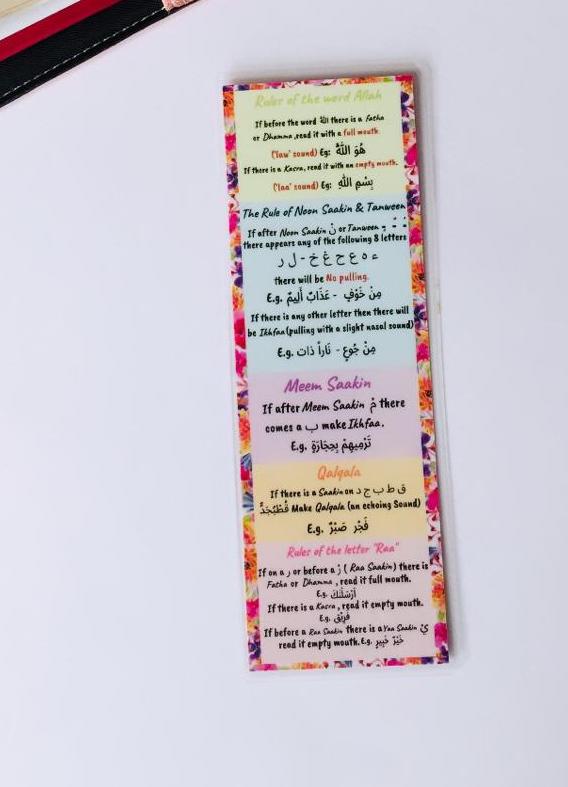 Rules of the word Allah
If before the word الله there is a Fatha
or Dhamma, read it with a full mouth.
('law' sound) Eg: هُوَ اللّٰهُ
If there is a Kasra, read it with an empty mouth.
('laa' sound) Eg: بِسْمِ اللّٰهِ
The Rule of Noon Saakin & Tanween
If after Noon Saakin نْ or Tanween
there appears any of the following 8 letters
ء ه ع ح غ خ - ل ر
there will be No pulling.
E.g. مِنْ خَوْفٍ - عَذَابٌ أَلِيمٌ
If there is any other letter then there will
be Ikhfaa (pulling with a slight nasal sound)
E.g. مِنْ جُوعٍ - نَاراً ذَاتَ
Meem Saakin
If after Meem Saakin مْ there
comes a ب make Ikhfaa.
E.g. تَرْمِيهِمْ بِحِجَارَةٍ
Qalqala
If there is a Saakin on ق ط ب ج د
قُطُبُجَدٍّ Make Qalqala (an echoing Sound)
E.g. فَجْر صَبْرٌ
Rules of the letter "Raa"
If on a ر or before a رْ ( Raa Saakin) there is
Fatha or Dhamma, read it full mouth.
E.g. أَرْسَلْنَكَ
If there is a Kasra, read it empty mouth.
E.g. فَرِيْقٌ
If before a Raa Saakin there is a Yaa Saakin يْ
read it empty mouth. E.g. خَيْرٌ خَبِير